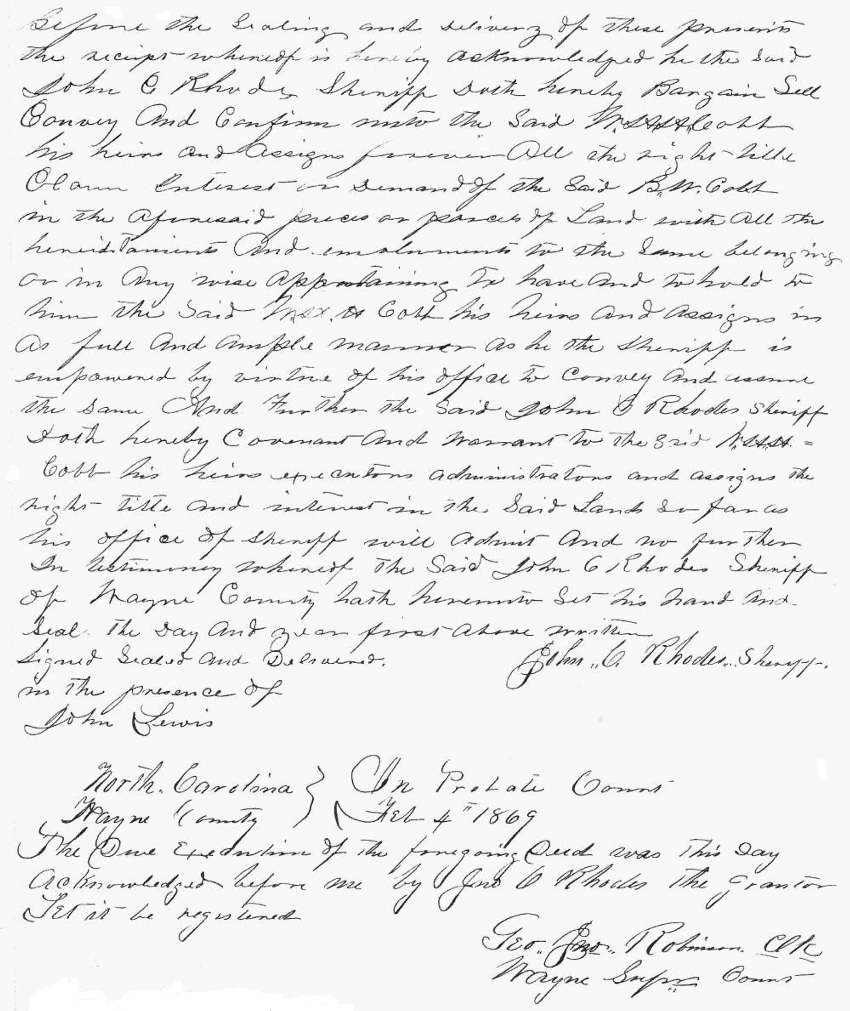 Before the Sealing and delivery of these presents
the receipt whereof is hereby acknowledged he the Said
John C Rhodes Sheriff Doth hereby Bargain Sell
Convey And Confirm unto the Said Cobb
his heirs and assigns forever All the right title
Claim Interest or Demand of the Said B.W. Cobb
in the Aforesaid pieces or parcels of Land with All the
hereditaments And emoluments to the Same belonging
or in Any wise Appertaining To have and to hold to
him the Said Cobb his heirs And assigns in
as full and ample manner as he the Sheriff is
empowered by virtue of his office to Convey And assure
the same And Further the Said John C Rhodes Sheriff
Doth hereby Covenant And Warrant to the Said
Cobb his heirs executors administrators and assigns the
right title and interest in the Said Lands So far as
his office of Sheriff will Admit And no further
In testimony whereof the Said John C Rhodes Sheriff
of Wayne County hath hereunto Set his hand And
Seal the Day And year first above written
Signed Sealed and Delivered. John C. Rhodes Sheriff.
in the presence of
John Lewis
North Carolina } In Probate Court
Wayne County } Feb 4th 1869
The Due Execution of the foregoing Deed was This Day
Acknowledged before me by Jno C Rhodes the grantor
Let it be registered
Geo. Robinson Clk
Wayne Supr Court